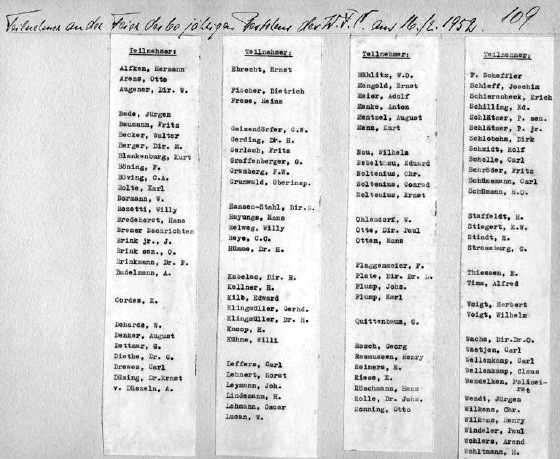 Teilnehmer an der Feier des 60 jährigen Bestehens der W.V.V. am 16./2. 1952.
109
Teilnehmer:
Alfken, Hermann
Arens, Otto
Augener, Dir. W.
Bade, Jürgen
Baumann, Fritz
Becker, Walter
Berger, Dir. H.
Blankenburg, Kurt
Böning, F.
Böving, C.A.
Bolte, Karl
Bormann, W.
Bozetti, Willy
Bredehorst, Hans
Bremer Nachrichten
Brink jr., J.
Brink sen., G.
Brinkmann, Dr. F.
Budelmann, A.
Cordes, K.
Dohards, W.
Denker, August
Dettmar, G.
Diethe, Dr. G.
Drewes, Carl
Düsing, Dr.Ernst
v. Düszeln, A.
Teilnehmer:
Ebrecht, Ernst
Fischer, Dietrich
Frese, Heinz
Geizendörfer, C.W.
Gerding, Dr. H.
Gerlach, Fritz
Graffenberger, G.
Gramberg, F.W.
Grunwald, Oberinsp.
Hansen-Stahl, Dir.G.
Hayungs, Hans
Helweg, Willy
Heye, C.C.
Hümme, Dr. H.
Kabelac, Dir. R.
Kellner, R.
Kilb, Edward
Klingmüller, Gerhd.
Klingmüller, Dr. H.
Knoop, H.
Kühne, Willi
Leffers, Carl
Lehnert, Horst
Leymann, Joh.
Lindemann, H.
Lohmann, Oscar
Lucan, W.
Teilnehmer:
Mählitz, W.O.
Mangold, Ernst
Meier, Adolf
Menke, Anton
Mentzel, August
Menz, Kurt
Nau, Wilhelm
Nebelthau, Eduard
Noltenius, Chr.
Noltenius, Conrad
Noltenius, Ernst
Ohlendorf, W.
Otte, Dir. Paul
Otten, Hans
Plaggenmeier, F.
Plate, Dir. Dr. L.
Plump, Johs.
Plump, Karl
Quittenbaum, G.
Rasch, Georg
Rasmussen, Henry
Reiners, E.
Riese, E.
Röschmann, Hans
Rolle, Dr. Johs.
Ronning, Otto
Teilnehmer:
P. Scheffler
Schleff, Joachim
Schierenbeck, Erich
Schilling, Ed.
Schlätzer, P. sen.
Schlätzer, P. jr.
Schlobohm, Dirk
Schmidt, Rolf
Scholle, Carl
Schröder, Fritz
Schünemann, Carl
Schümann, H.O.
Staffeldt, H.
Stiegert, E.W.
Stindt, H.
Strassburg, C.
Thiessen, E.
Timm, Alfred
Voigt, Herbert
Voigt, Wilhelm
Wachs, Dir.Dr.O.
Waetjen, Carl
Wellenkamp, Carl
Wellenkamp, Claus
Wendelken, Polizei-
rat
Wendt, Jürgen
Wilkens, Chr.
Wilkens, Henry
Windeler, Paul
Wohlers, Arend
Wohltmann, H.